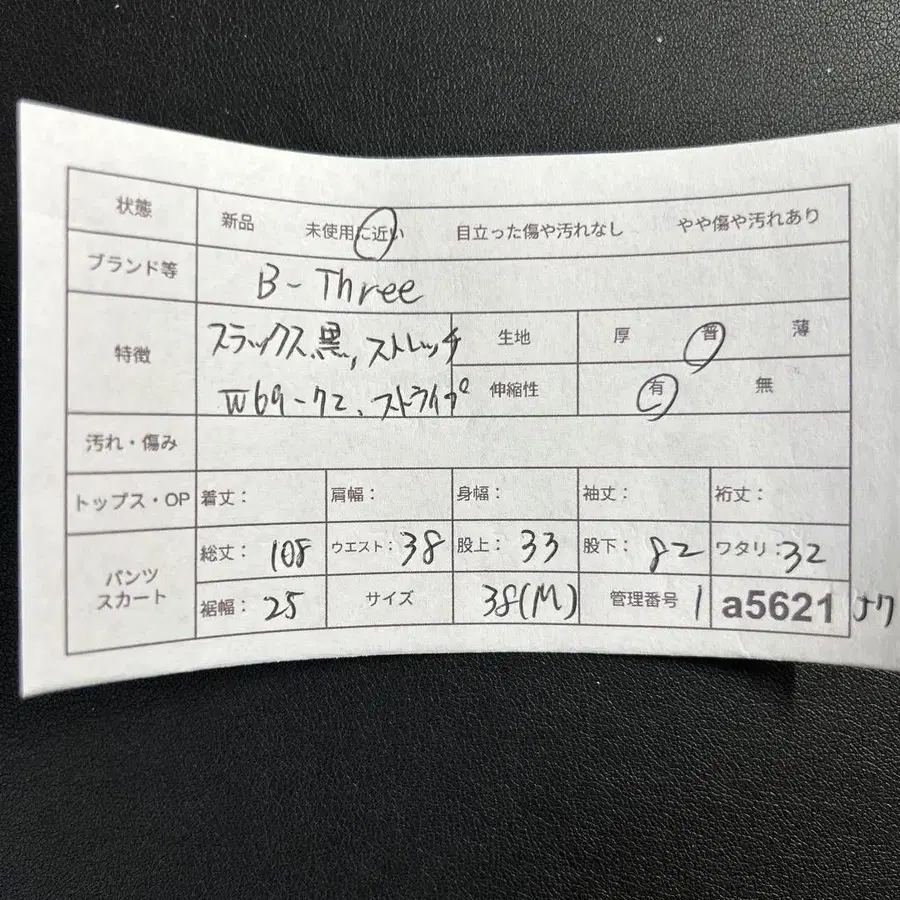 状態 新品 未使用に近い 目立った傷や汚れなし やや傷や汚れあり
ブランド等 B-Three
特徴 スラックス、黒、ストレッチ 生地 厚 普 薄
W69-72、ストライプ 伸縮性 有 無
汚れ・傷み
トップス・OP 着丈: 肩幅: 身幅: 袖丈: 裄丈:
パンツ スカート 総丈: 108 ウエスト: 38 股上: 33 股下: 82 ワタリ: 32
裾幅: 25 サイズ 38(M) 管理番号 1 a5621